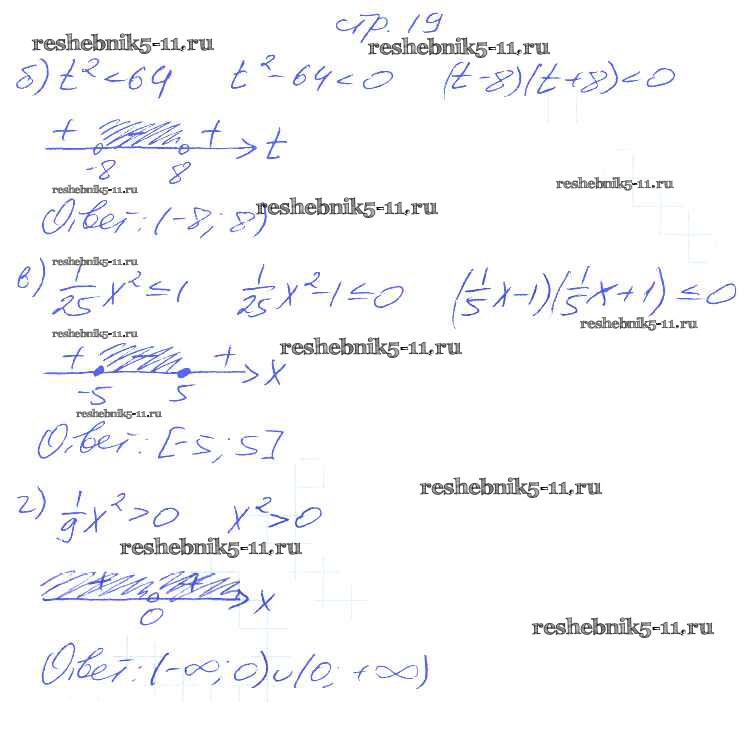 стр. 19
reshebnik5-11.ru reshebnik5-11.ru
б) t² < 64 t² - 64 < 0 (t - 8)(t + 8) < 0
+ - + t
-8 8
reshebnik5-11.ru reshebnik5-11.ru
Ответ: (-8; 8) reshebnik5-11.ru
reshebnik5-11.ru
в) 1/25 x² ≤ 1 1/25 x² - 1 ≤ 0 (1/5 x - 1)(1/5 x + 1) ≤ 0
reshebnik5-11.ru
reshebnik5-11.ru reshebnik5-11.ru
+ + x
-5 5
reshebnik5-11.ru
Ответ: [-5; 5]
reshebnik5-11.ru
г) 1/9 x² > 0 x² > 0
reshebnik5-11.ru
+ + x
0
reshebnik5-11.ru
Ответ: (-∞; 0) ∪ (0; +∞)